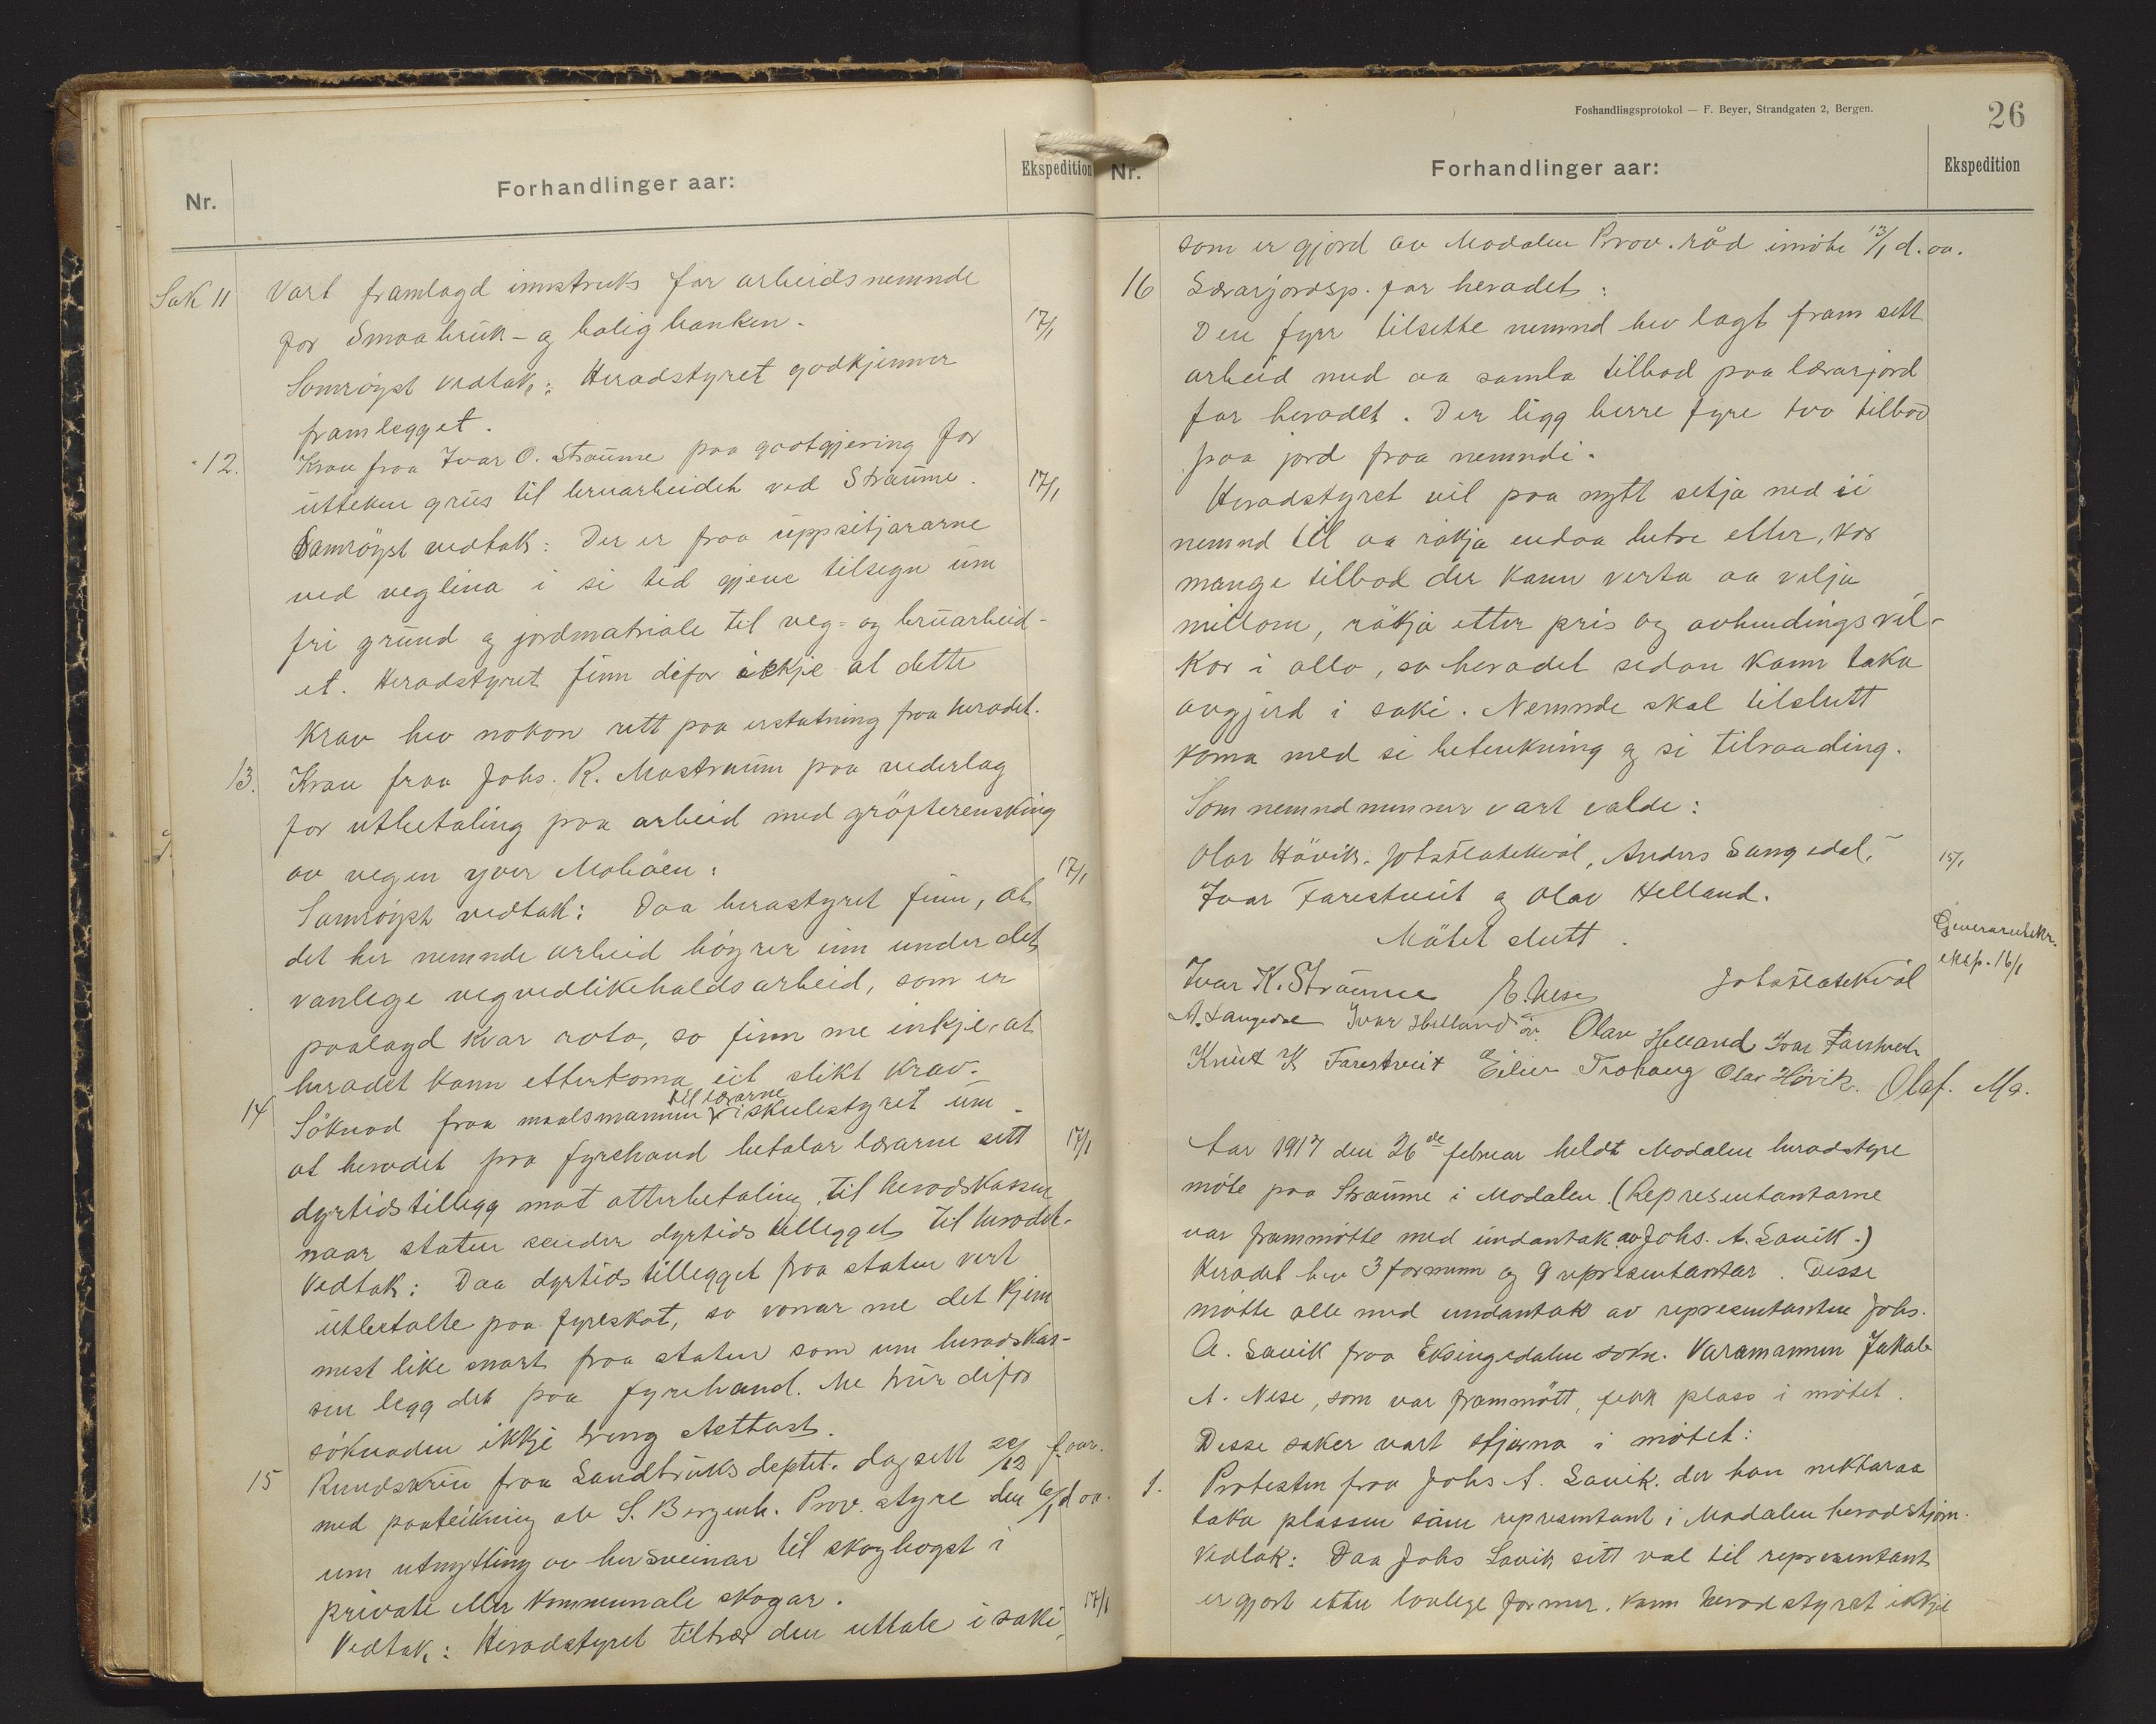 Nr.
Forhandlinger aar:
Ekspedition
Sak 11 Vart framlagd innstruks for arbeidsnemnde
for Smaabruk- og boligbanken. 17/1
Samröyst vedtak: Heradstyret godkjenner
framlegget.
" 12. Krav fraa Ivar O. Straume paa godtgjering for
utteken grus til bruarbeidet ved Straume. 17/1
Samröyst vedtak: Der er fraa uppsitjararne
ved veglina i si tid gjeve tilsegn um
fri grund og jordmatriale til veg- og bruarbeid-
et. Heradstyret finn difor ikkje at dette
krav hev nokon rett paa erstatning fraa heradet.
13. Krav fraa Johs. R. Mostraum paa vederlag
for utbetaling paa arbeid med gröfterensking
av vegen yver Moböen: 17/1
Samröyst vedtak: Daa herastyret finn, at
det her nemnde arbeid höyrer inn under det
vanlege vegvedlikehaldsarbeid, som er
paalagd kvar rota, so finn me inkje at
heradet kann etterkoma eit slikt krav.
14 Söknad fraa maalsmannen til lærarne i skulestyret um
at heradet paa fyrehand betalar lærarne sitt 17/1
dyrtidstillegg mot atterbetaling til heradskassen
naar staten sender dyrtidstillegget til heradet.
Vedtak: Daa dyrtidstillegget fraa staten vert
utbetalte paa fyreskot, so vonar me det kjem
mest like snart fraa staten som um heradskas-
sen legg det paa fyrehand. Me trur difor
söknaden ikkje treng stettast.
15 Rundskriv fraa Landbruksdeptet. dagsett 22/12 f. aar.
med paateikning av S. Bergenh. Prov. styre den 6/1 d. aa.
um utnytting av hersveinar til skoghogst i
private eller kommunale skogar. 17/1
Vedtak: Heradstyret tiltrær den uttale i saki,
Foshandlingsprotokol — F. Beyer, Strandgaten 2, Bergen.
26
Nr.
Forhandlinger aar:
Ekspedition
som er gjord av Modalen Prov. råd i möte 13/1 d. aa.
16 Lærarjordsp. for heradet:
Den fyrr tilsette nemnd hev lagt fram sitt
arbeid med aa samla tilbod paa lærarjord
for heradet. Der ligg berre fyre tvo tilbod
paa jord fraa nemndi.
Heradstyret vil paa nytt setja ned ei
nemnd til aa rökja endaa betre etter, kor
mange tilbod der kann verta aa velja
millom, rökja etter pris og avhendingsvil-
kor i allo, so heradet sedan kann taka
avgjerd i saki. Nemnde skal tilslutt
koma med si betenkning og si tilraading.
Som nemndmenner vart valde:
Olav Hövik, Joh. Steinskvål, Anders Langedal, 15/1
Ivar Farestveit og Olav Helland.
Mötet slutt.
eksp. 16/1
Ivar K. Straume E. Nese
A. Langedal Ivar Helland Olav Helland Ivar Farestveit
Knut K Farestveit Eiliv Trohaug Olav Hövik. Olaf. Mo.
Aar 1917 den 26de februar heldt Modalen heradstyre
möte paa Straume i Modalen. (Representantarne
var frammötte med undantak av Johs. A. Lavik.)
Heradet hev 3 formenn og 9 representantar. Desse
mötte alle med undantak av representanten Johs.
A. Lavik fraa Eksingedalen sokn. Varamannen Jakob
A. Nese, som var frammött, fekk plass i mötet.
Desse saker vart styrna i mötet:
1. Protesten fraa Johs A. Lavik. der han nektar aa
taka plassen sin som representant i Modalen heradstjorn.
Vedtak: Daa Johs Lavik sitt val til representant
er gjort etter lovlege former, kann heradstyret ikkje